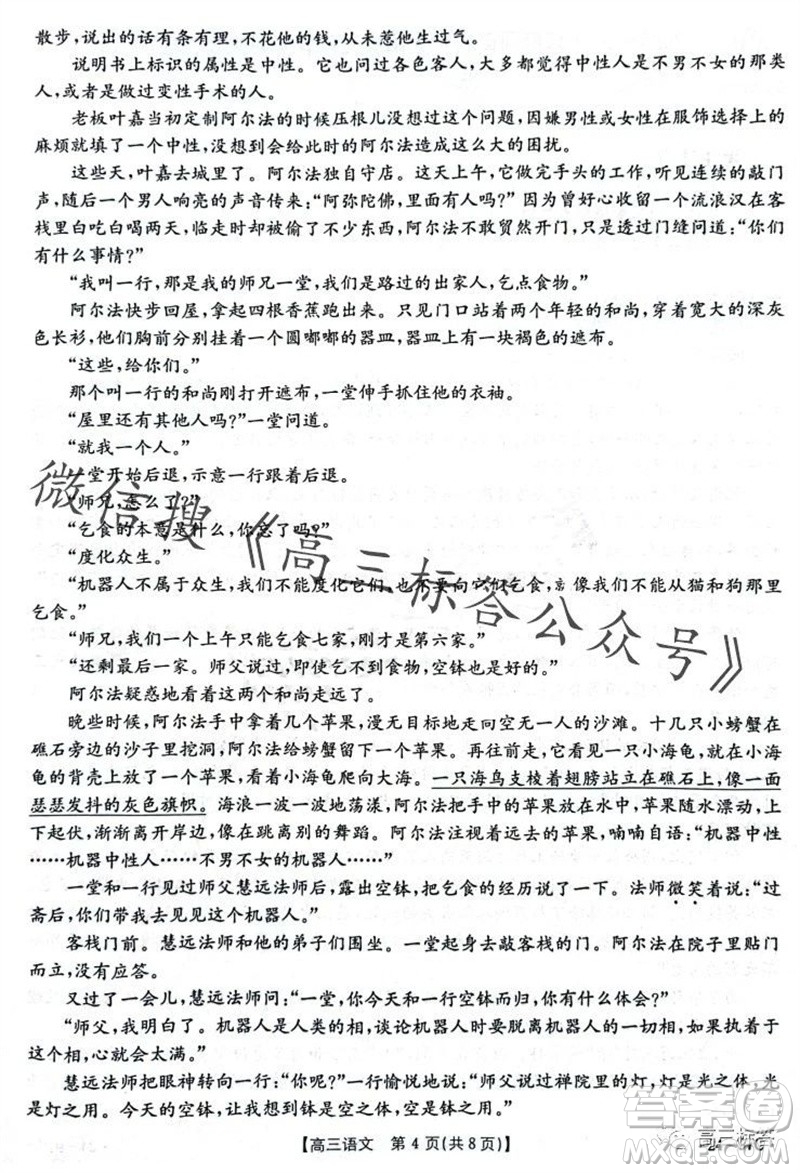 散步，说出的话有条有理，不花他的钱，从未惹他生过气。
说明书上标识的属性是中性。它也问过各色客人，大多都是不男不女的那类
人，或者是做过变性手术的人。
老板叶嘉当初定制阿尔法的时候压根儿没想过这个问题，因男性或女性在服饰选择上的
麻烦就填了一个中性，并没有想到会给现在的阿尔法造成这么大的困扰。
这些天，叶嘉去城里了。阿尔法独自守店。这天上午，它做完手头的工作，有连续的敲门
声，随后一个男人响亮的声音传来：“阿弥陀佛，里面有人吗？”因为曾好心收留的一个流浪汉在客
栈里白吃白喝两天，临走时却被偷了不少东西，阿尔法不敢贸然开门，只是透过门缝问道：“你们
有什么事情？”
“我叫一行，那是我的师兄一堂，我们是路过的出家人，乞点食物。”
阿尔法快步回屋，拿起四根香蕉跑出来。只见门口站着两个年轻的和尚，穿着宽大的深灰
色长衫，他们胸前分别挂着一个圆嘟嘟的器皿，器皿上有一块褐色的遮布。
“这些，给你们。”
那个叫一行的和尚刚打开遮布，一堂伸手抓住他的衣袖。
“屋里还有其他人吗？”一堂问道。
“就我一个人。”
堂开始后退，示意一行跟着后退。
“师兄，怎么了？”
“乞食的本意是什么，你忘了吗？”
“度化众生。”
“机器人不属于众生，我们不能度化它们，也不要向它们乞食，就像我们不能从猫和狗那里
乞食。”
“师兄，我们一个上午只能乞食七家，刚才是第六家。”
“还剩最后一家。师父说过，即使乞不到食物，空钵也是好的。”
阿尔法疑惑地看着这两个和尚走远了。
晚些时候，阿尔法手中拿着几个苹果，漫无目标地走向空无一人的沙滩。十几只小螃蟹在
礁石旁边的沙子里挖洞，阿尔法给螃蟹留下了一个苹果。再往前走，就在一只小海龟，它在小海
龟的背壳上放了一个苹果，看着小海龟爬向大海。一只海鸟支棱着翅膀站立在礁石上，像一面
瑟瑟发抖的灰色旗帜。海浪一波一波地荡漾，阿尔法把手中的苹果放在水中，苹果随水漂动，上
下起伏，渐渐离开岸边，像在跳离别的舞蹈。阿尔法注视着远去的苹果，喃喃自语：“机器中性
……机器中性人……不男不女的机器人……”
一堂和一行见过师父慧远法师后，露出空钵，把乞食的经历说了一下。法师微笑着说：“过
斋后，你们带我去见见这个机器人。”
客栈门前。慧远法师和他的弟子们围坐。一堂上去敲客栈的门。阿尔法在院子里贴门
而立，没有应答。
又过了一会儿，慧远法师问：“一堂，你今天和一行空钵而归，你有什么体会？”
“师父，我明白了。机器人是人类的相，谈论机器人时要脱离机器人的一切相，如果执着于
这个相，心就会太满。”
慧远法师把眼神转向一行：“你呢？”一行愉悦地说：“师父说过禅院里的灯，灯是光之体，光
是灯之用。今天的空钵，让我们发现了
【高三语文　第4页(共8页)】
微信搜《高三标答公众号》
答案圈
高三标答